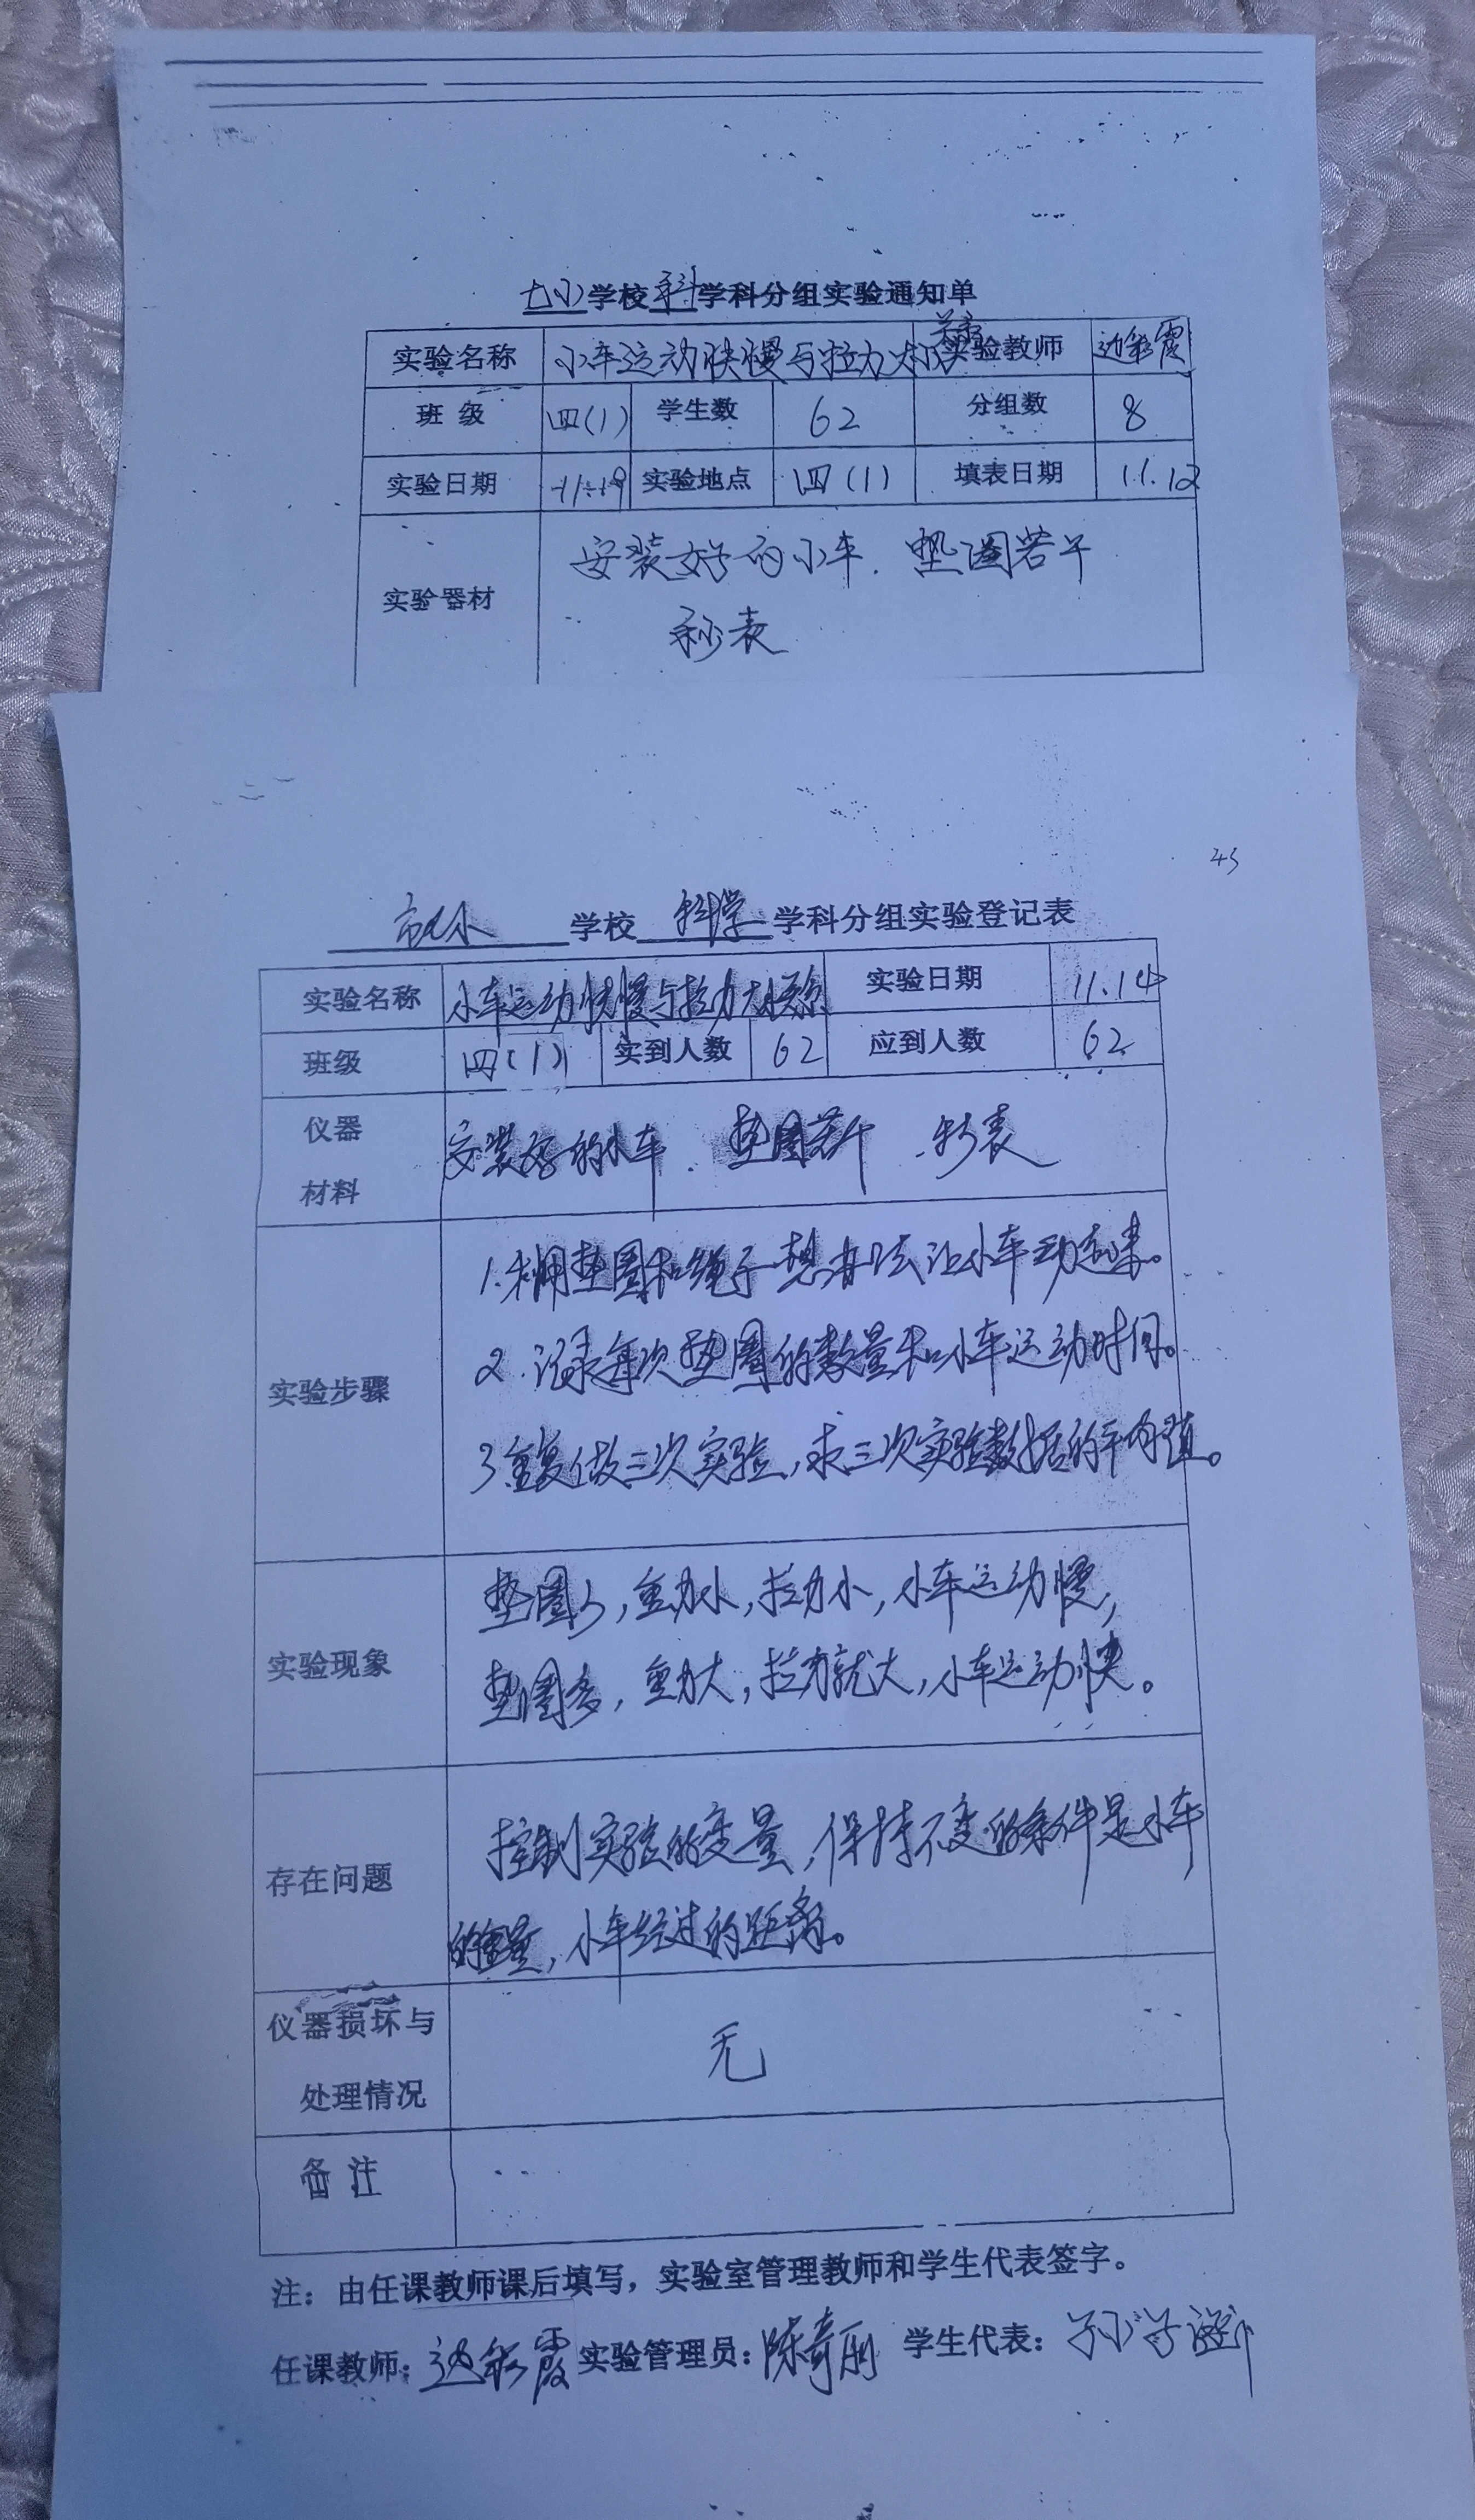 七小学校科学科分组实验通知单
实验名称 小车运动快慢与拉力大小关系 实验教师 边彩霞
班 级 四(1) 学生数 62 分组数 8
实验日期 实验地点 四(1) 填表日期 11.12
安装好的小车. 垫圈若干
实验器材
秒表
43
学校 科学 学科分组实验登记表
实验名称 小车运动快慢与拉力大小关系 实验日期 11.14
班级 四(1) 实到人数 62 应到人数 62
仪器
安装好的小车. 垫圈若干. 秒表
材料
1.利用垫圈和绳子想办法让小车动起来。
2.记录每次垫圈的数量和小车运动时间。
实验步骤
3.重复做三次实验,求三次实验数据的平均值。
垫圈少,重力小,拉力小,小车运动慢,
实验现象
垫圈多,重力大,拉力就大,小车运动快。
控制实验的变量,保持不变的条件是小车
存在问题
的重量,小车经过的距离。
仪器损坏与
无
处理情况
备 注
注：由任课教师课后填写，实验室管理教师和学生代表签字。
任课教师：边彩霞 实验管理员：陈奇丽 学生代表：